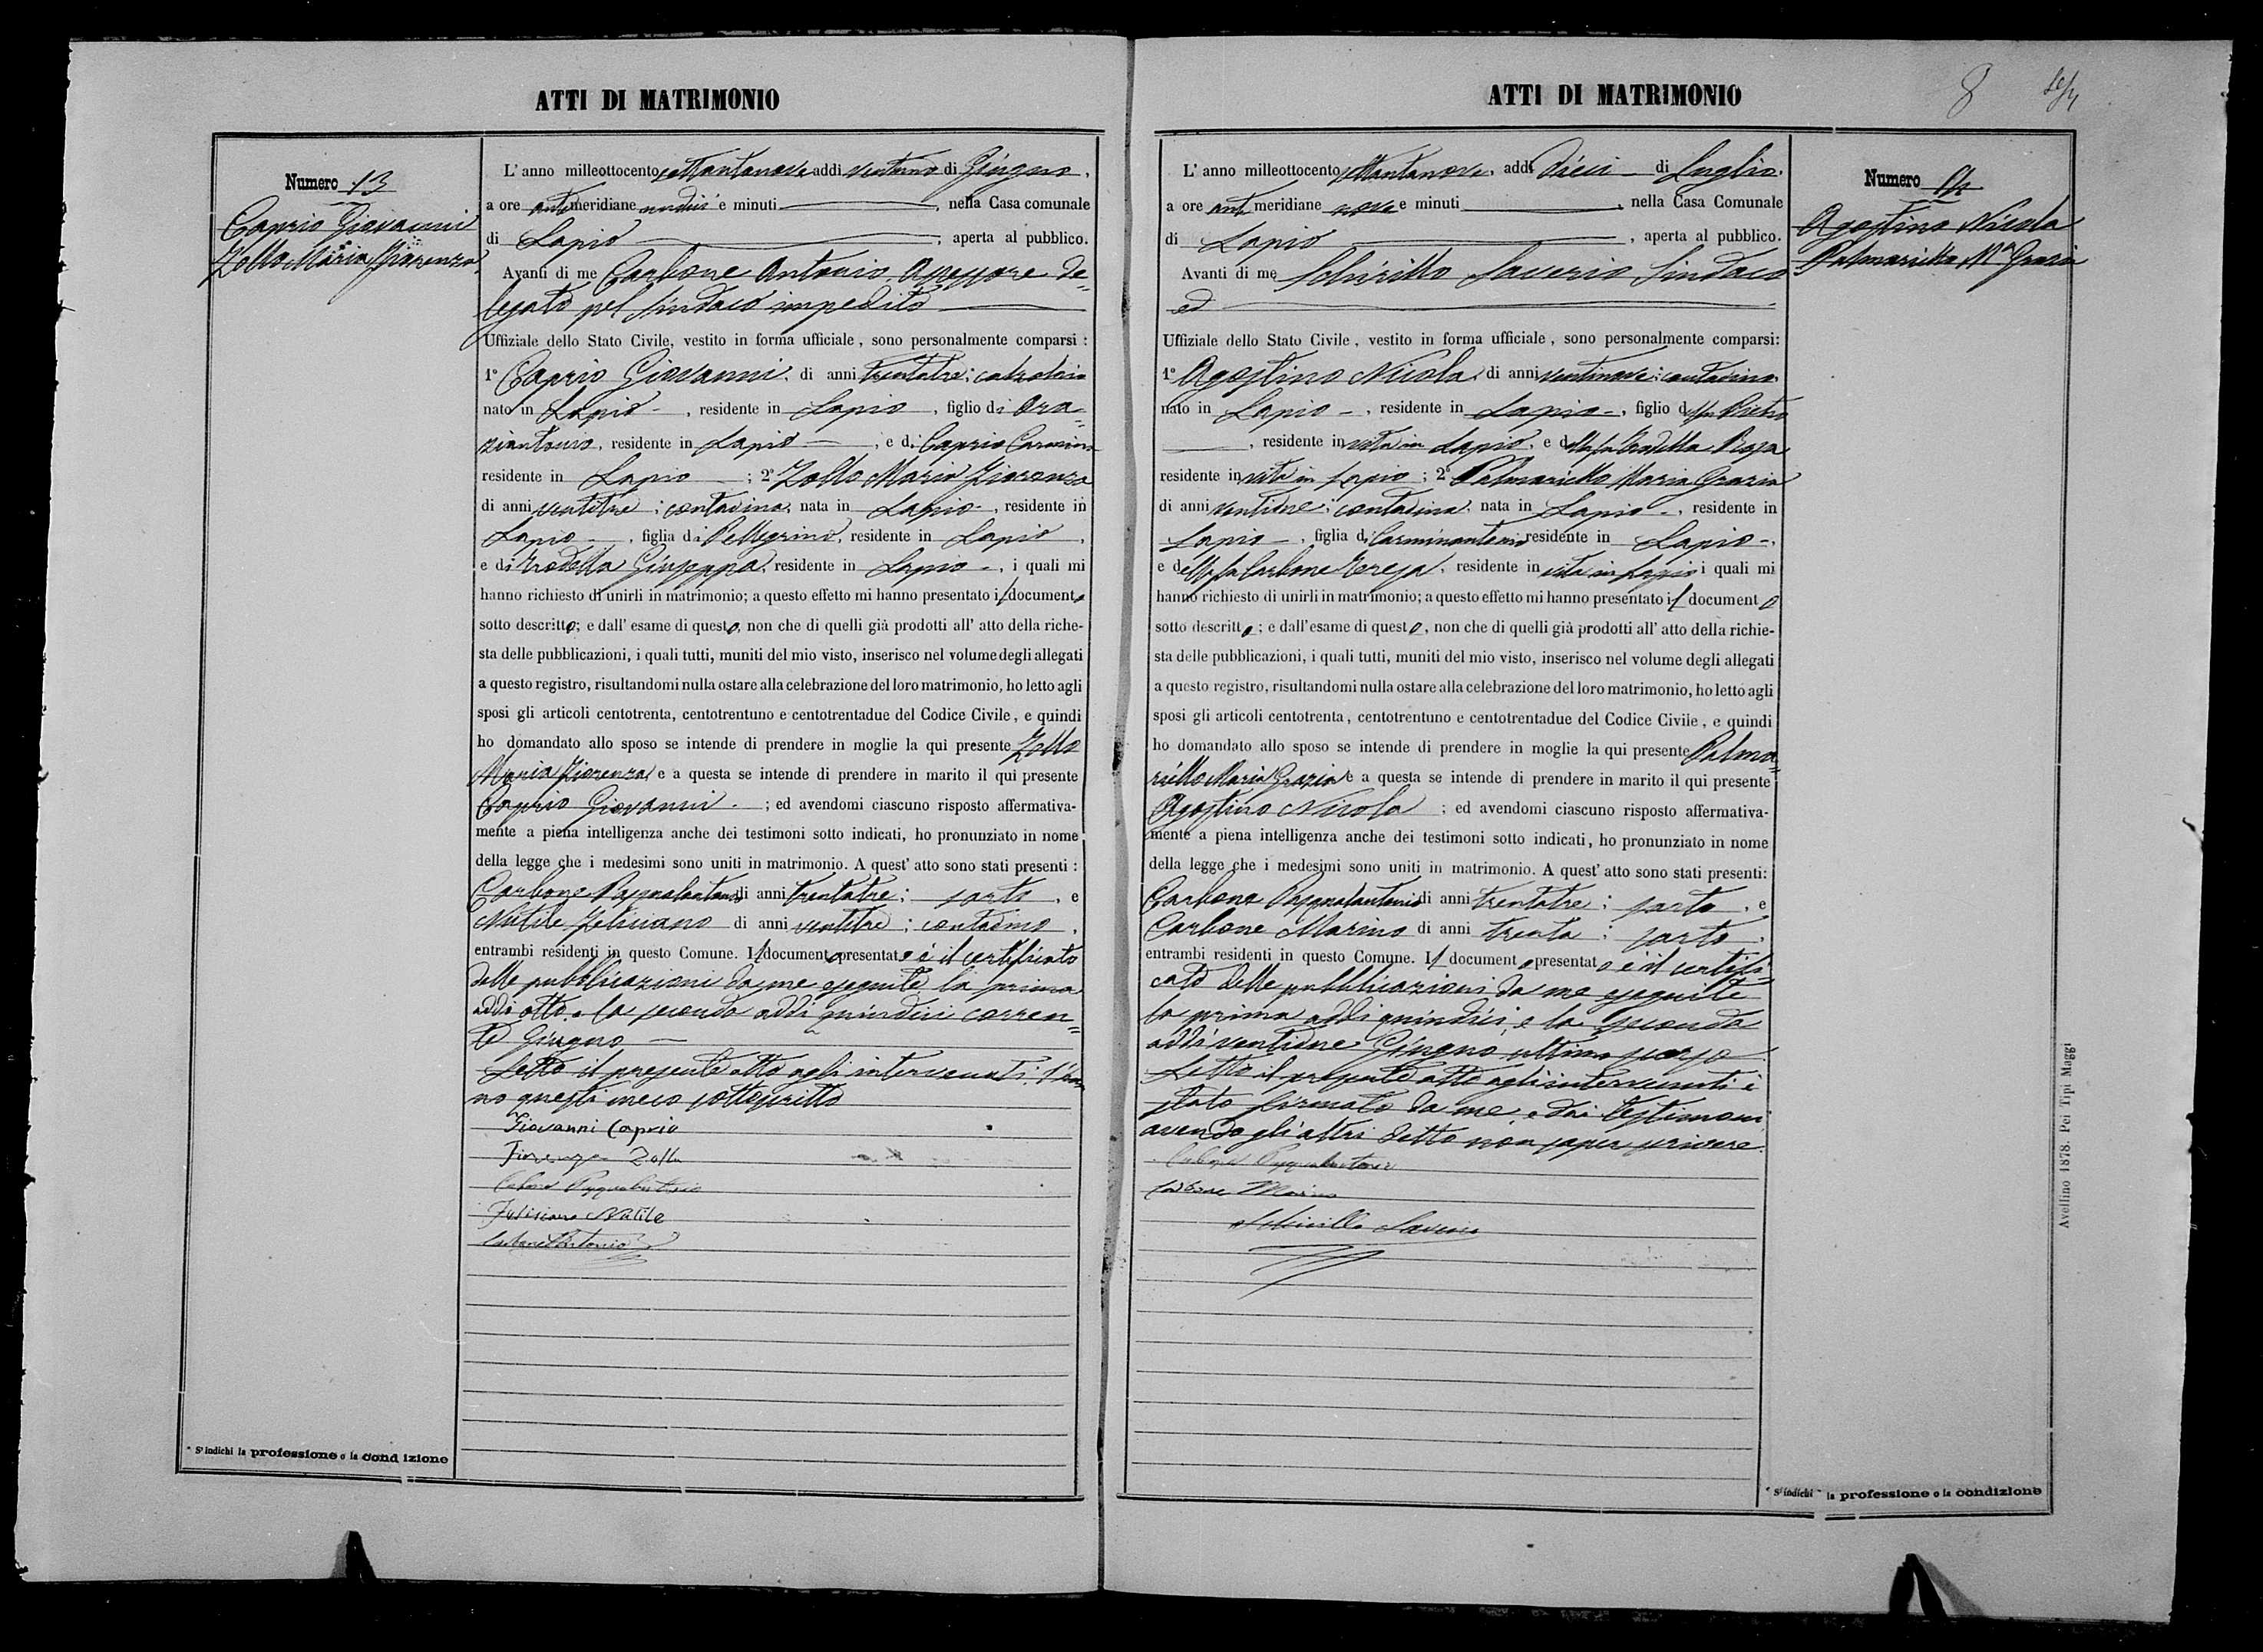 ATTI DI MATRIMONIO
Numero 13
Caprio Giovanni
Zollo Maria Fiorenza
L' anno milleottocento settantanove addì ventuno di Giugno,
a ore antimeridiane undici e minuti , nella Casa comunale
di Lapio , aperta al pubblico.
Avanti di me Carbone Antonio Assessore de=
legato pel Sindaco impedito
Uffiziale dello Stato Civile, vestito in forma ufficiale, sono personalmente comparsi :
1° Caprio Giovanni, di anni trentatre; calzolaio
nato in Lapio , residente in Lapio , figlio di Ora=
ziantonio, residente in Lapio , e di Caprio Carmina
residente in Lapio ; 2° Zollo Maria Fiorenza
di anni ventitre ; contadina, nata in Lapio , residente in
Lapio , figlia di Pellegrino, residente in Lapio ,
e di Trodella Giuseppa, residente in Lapio , i quali mi
hanno richiesto di unirli in matrimonio; a questo effetto mi hanno presentato il documento
sotto descritto; e dall' esame di questo, non che di quelli già prodotti all' atto della riche-
sta delle pubblicazioni, i quali tutti, muniti del mio visto, inserisco nel volume degli allegati
a questo registro, risultandomi nulla ostare alla celebrazione del loro matrimonio, ho letto agli
sposi gli articoli centotrenta, centotrentuno e centotrentadue del Codice Civile, e quindi
ho domandato allo sposo se intende di prendere in moglie la qui presente Zollo
Maria Fiorenza e a questa se intende di prendere in marito il qui presente
Caprio Giovanni ; ed avendomi ciascuno risposto affermativa-
mente a piena intelligenza anche dei testimoni sotto indicati, ho pronunziato in nome
della legge che i medesimi sono uniti in matrimonio. A quest' atto sono stati presenti :
Carbone Pasqualantonio di anni trentatre ; sarto , e
Natile Feliciano di anni ventitre ; contadino ,
entrambi residenti in questo Comune. Il documento presentato è il certificato
delle pubblicazioni da me eseguite la prima
addì otto e la seconda addì quindici corren=
te Giugno
Letto il presente atto agli intervenuti l'han
no questi meco sottoscritto
Giovanni Caprio
Fiorenza Zollo
Carbone Pasqualantonio
Feliciano Natile
Carbone Antonio
* S' indichi la professione o la condizione
ATTI DI MATRIMONIO
8
Numero 14
Agostino Nicola
Palmariello Mª Grazia
L' anno milleottocento settantanove, addì dieci di Luglio,
a ore anti meridiane nove e minuti , nella Casa Comunale
di Lapio , aperta al pubblico.
Avanti di me Schirillo Saverio Sindaco
ed
Uffiziale dello Stato Civile, vestito in forma ufficiale, sono personalmente comparsi:
1° Agostino Nicola, di anni ventinove; contadino
nato in Lapio , residente in Lapio , figlio del fu Pietro
, residente in vita in Lapio, e della fu Trodella Rosa
residente in vita in Lapio ; 2° Palmariello Maria Grazia
di anni ventidue; contadina, nata in Lapio , residente in
Lapio , figlia di Carminantonio residente in Lapio ,
e della fu Carbone Teresa, residente in vita in Lapio i quali mi
hanno richiesto di unirli in matrimonio; a questo effetto mi hanno presentato il documento
sotto descritto; e dall' esame di questo, non che di quelli già prodotti all' atto della richie-
sta delle pubblicazioni, i quali tutti, muniti del mio visto, inserisco nel volume degli allegati
a questo registro, risultandomi nulla ostare alla celebrazione del loro matrimonio, ho letto agli
sposi gli articoli centotrenta, centotrentuno e centotrentadue del Codice Civile, e quindi
ho domandato allo sposo se intende di prendere in moglie la qui presente Palma=
riello Maria Grazia e a questa se intende di prendere in marito il qui presente
Agostino Nicola ; ed avendomi ciascuno risposto affermativa-
mente a piena intelligenza anche dei testimoni sotto indicati, ho pronunziato in nome
della legge che i medesimi sono uniti in matrimonio. A quest' atto sono stati presenti:
Carbone Pasqualantonio di anni trentatre ; sarto , e
Carbone Marino di anni trenta ; sarto ,
entrambi residenti in questo Comune. Il documento presentato è il certifi=
cato delle pubblicazioni da me eseguite
la prima addì quindici, e la seconda
addì ventidue Giugno ultimo scorso
Letto il presente atto agli intervenuti è
stato firmato da me, e dai testimoni
avendo gli altri detto non saper scrivere.
Carbone Pasqualantonio
Carbone Marino
Schirillo Saverio
* S' indichi la professione o la condizione
Avellino 1878. Pei Tipi Maggi